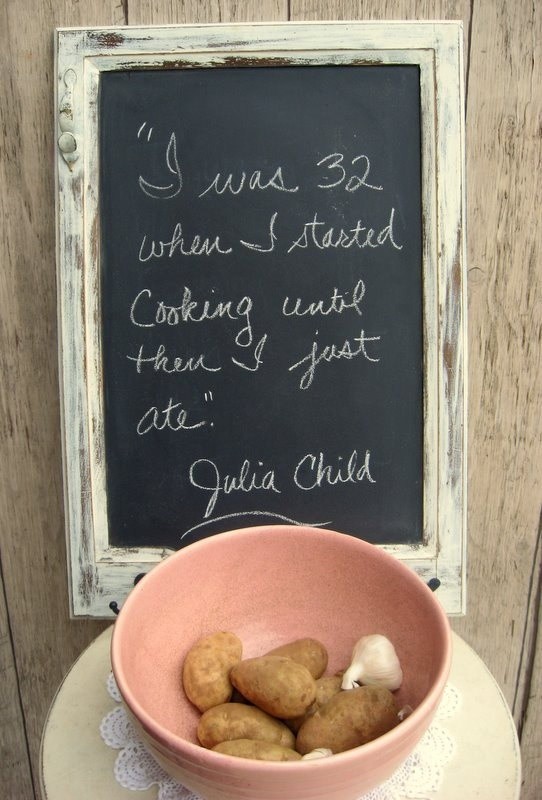 "I was 32
when I started
Cooking until
then I just
ate".
Julia Child